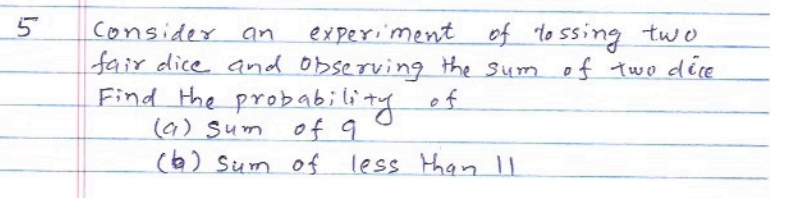 5 Consider an experiment of tossing two
fair dice and Observing the sum of two dice
Find the probability of
(a) sum of 9
(b) sum of less than 11